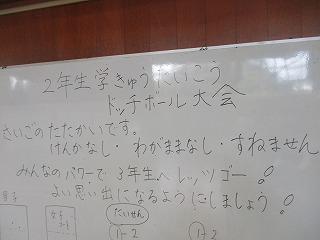 2年生学きゅうたいこう
ドッチボール大会
さいごのたたかいです。
けんかなし・わがままなし・すねません
みんなのパワーで3年生へレッツゴー!
よい思い出になるようにしましょう!
男子
女子
たいせん
1-2
1-2